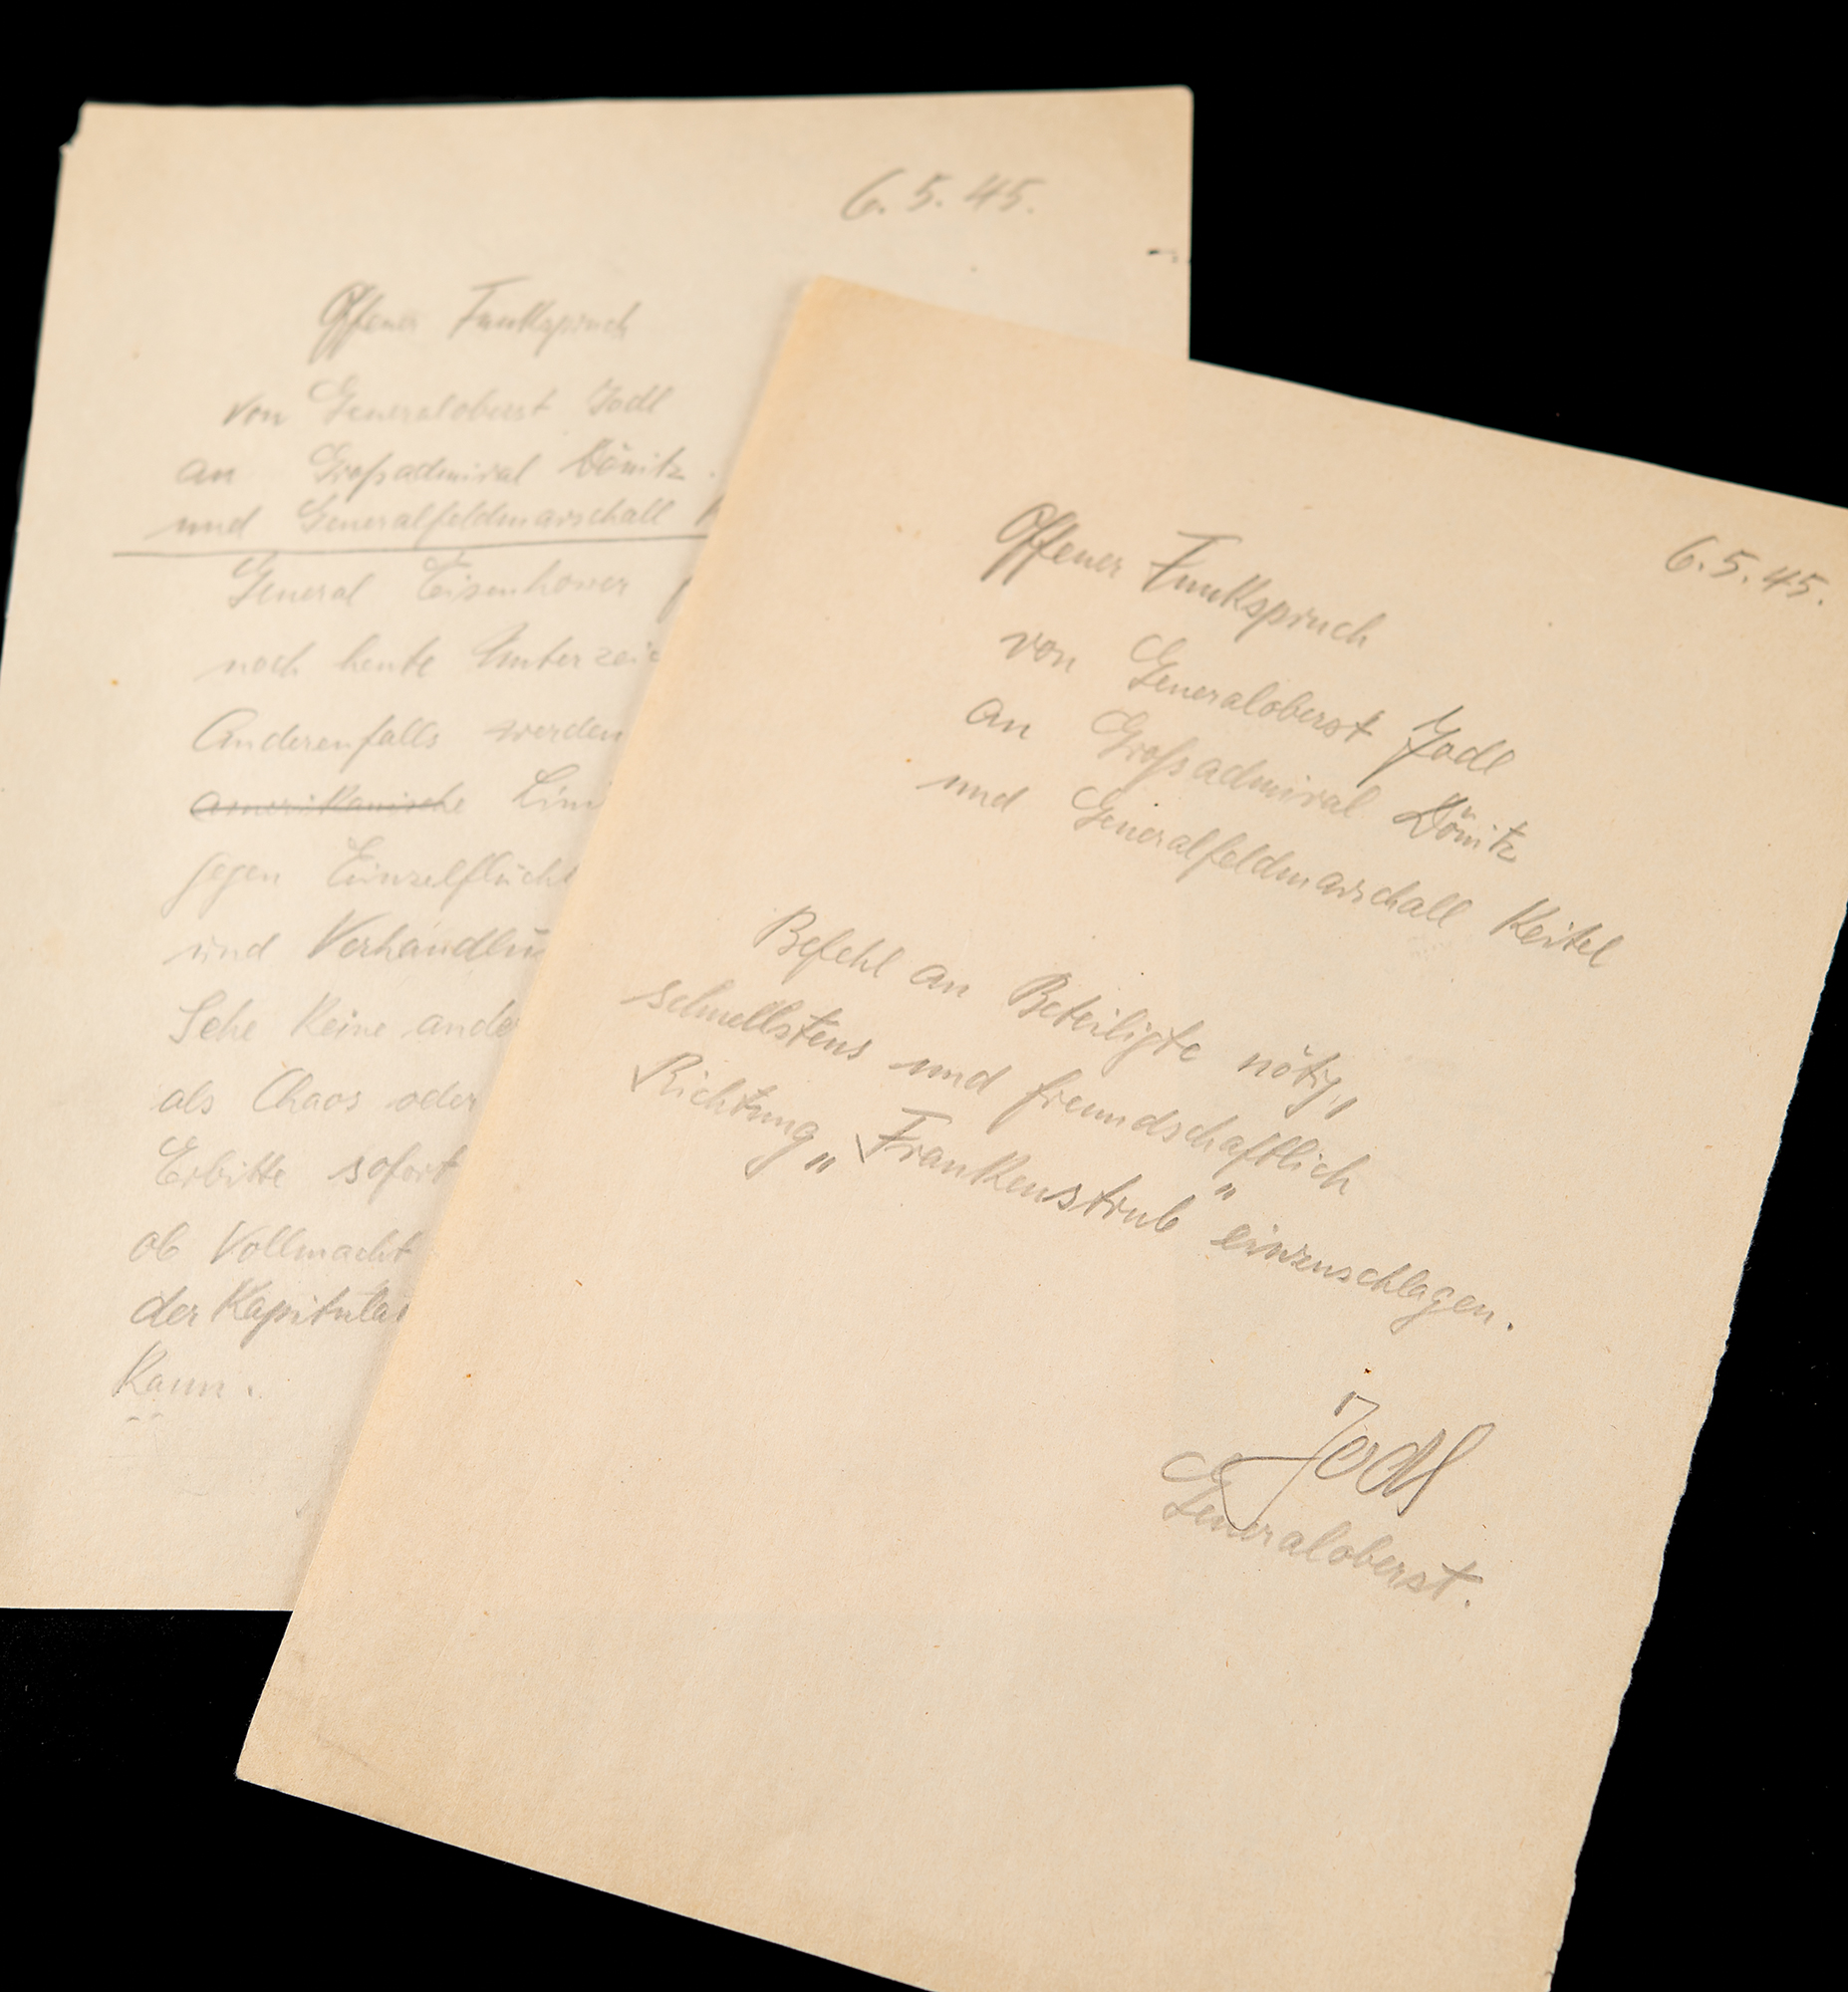 6. 5. 45.
Offener Funkspruch
von Generaloberst Jodl
an Großadmiral Dönitz.
und Generalfeldmarschall K
General Eisenhower
noch heute Unterzeic
Anderenfalls werden
amerikanische Lini
gegen Einzelflücht
und Verhandlun
Sehe keine ande
als Chaos oder
Erbitte sofort
ob Vollmacht
der Kapitulat
kann.
6. 5. 45.
Offener Funkspruch
von Generaloberst Jodl
an Großadmiral Dönitz
und Generalfeldmarschall Keitel
Befehl an Beteiligte nötig,
schnellstens und freundschaftlich
Richtung „Frankenstrub" einzuschlagen.
Jodl
Generaloberst.